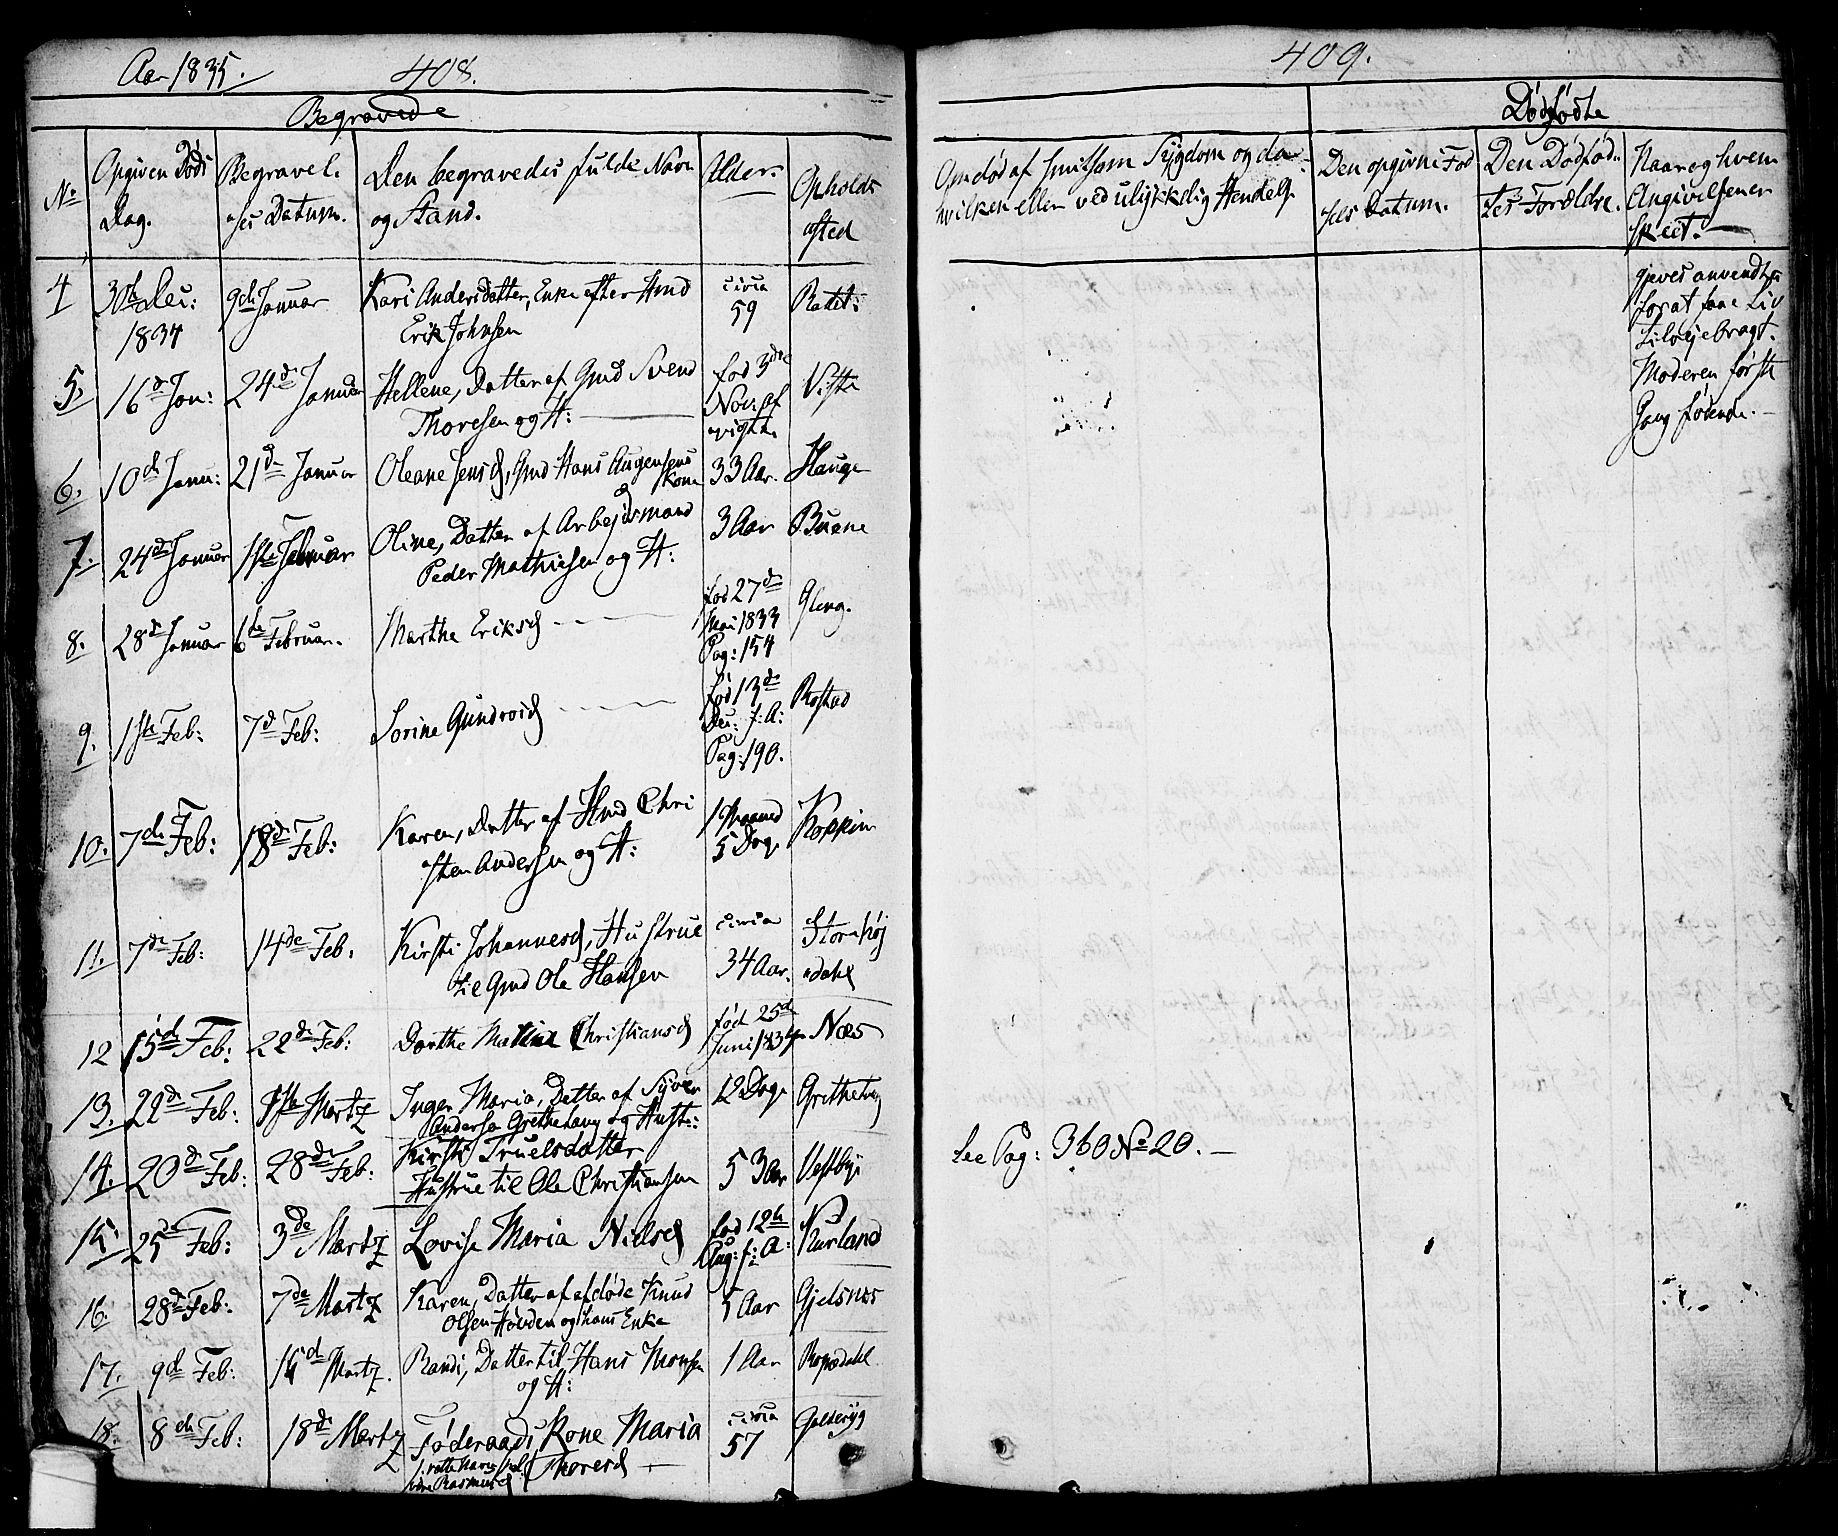 Aar 1835.
408.
Begravede
No
Opgiven Døds
Dag.
Begravel.
ses Datum.
Den begravedes fulde Navn
og Stand.
Alder.
Opholds
sted
4
30te Dec:
1834
9de Januar
Kari Andersdatter, Enke efter Hmd
Erik Johnsen
circa
59
5.
16de Jan:
24de Januar
Hellene, Datter af Gmd Svend
Thoresen og H:
fød 3die
Nov: af
vigte.
Viste
6.
10de Janu:
21de Januar
Oleane Jensd, Gmd Hans Augensens
Kone
33 Aar.
Hauge
7.
24de Januar
1ste Februar
Oline, Datter af Arbejdsmand
Peder Mathiesen og H:
3 Aar
Buene
8.
28de Januar
6te Februar.
Marthe Eriksd
fød 27de
Mai 1833
Pag: 154
Gleng.
9.
1ste Feb:
7de Feb:
Sorine Gundrosd
fød 13de
Dec: f: A:
Pag: 190.
Rostad
10.
7de Feb:
18de Feb:
Karen, Datter af Hmd Chri
sten Andersen og H:
1 Maaned
5 Dage
Koppin
11.
7de Feb:
14de Feb.
Kirsti Johannesd, Hustrue
til Gmd Ole Hansen
circa
34 Aar.
Storehøj
dahl
12
15de Feb:
22de Feb:
Dorthe Matina Christiansd
fød 25de
Juni 1834
Næs
13.
22de Feb:
1ste Martz
Inger Maria, Datter af Syver
Andersen Grethetang og Hust:
12 Dage
Grethetang
14.
20de Feb:
28de Feb:
Kirsti Truelsdatter
Hustrue til Ole Christiansen
53 Aar
Vestbye
15.
25de Feb:
3de Martz
Lovise Maria Nielsd
fød 12te
Aug: f: A:
Kurland
16.
28de Feb:
7de Martz
Karen, Datter af afdøde Knud
Olsen Høiden og hans Enke
5 Aar
Gjelsnæs
17.
9de Feb:
14de Martz.
Randi, Datter til Hans Monsen
og H:
1 Aar
18.
8de Feb:
18de Martz
Føderaads Kone Maria
Thoresd
circa
57
409.
Dødfødte
Om død af smitsom Sygdom og da
hvilken eller ved ulykkelig Hendelse
Den opgivne Fød
sels Datum.
Den Dødfød..
tes Forældre.
Naar og hvem
Angivelsen er
skeet.
gjeves anvendt
for at faae Liv
tilvejebragt.
Moderen første
Gang fødende.
See Pag: 360 No 20.